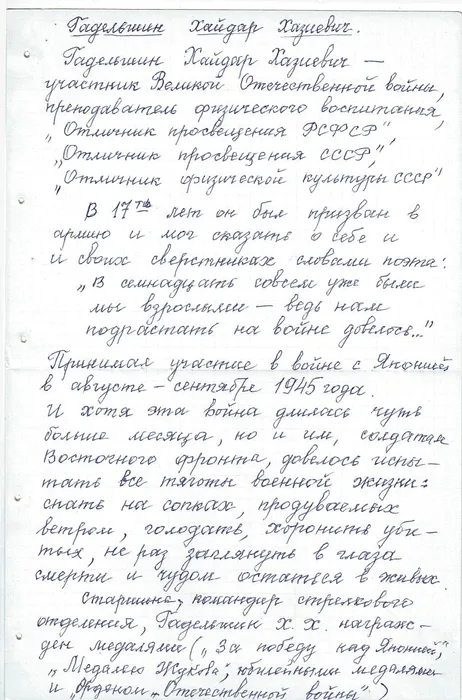 Гадельшин Хайдар Хазиевич.
Гадельшин Хайдар Хазиевич —
участник Великой Отечественной войны,
преподаватель физического воспитания,
„Отличник просвещения РСФСР",
„Отличник просвещения СССР",
„Отличник физической культуры СССР"
В 17ть лет он был призван в
армию и мог сказать о себе и
и своих сверстниках словами поэта:
„В семнадцать совсем уже были
мы взрослыми — ведь нам
подрастать на войне довелось..."
Принимал участие в войне с Японией
в августе – сентябре 1945 года.
И хотя эта война длилась чуть
больше месяца, но и им, солдатам
Восточного фронта, довелось испы–
тать все тяготы военной жизни:
спать на сопках, продуваемых
ветром, голодать, хоронить уби–
тых, не раз заглянуть в глаза
смерти и чудом остаться в живых.
Старшина, командир стрелкового
отделения, Гадельшин Х. Х. награж–
ден медалями („За победу над Японией",
„Медалью Жукова", юбилейными медалями
и „Орденом „Отечественной войны")